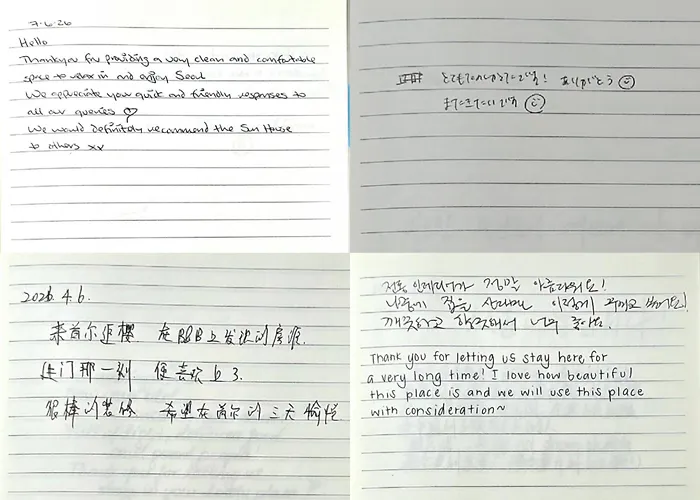 7.6.26
Hello
Thankyou for providing a very clean and comfortable
space to relax in and enjoy Seoul
We appreciate your quick and friendly responses to
all our queries ♡
We would definitely recommend the Sun House
to others xx
とてもたのしかったです! ありがとう ☺
またきたいです ☺
2026.4.6.
来首尔追樱 在BNB上发现的房源.
进门那一刻 便喜欢上了.
很棒的装修 希望在首尔的三天愉悦
전통 인테리어가 정말 아름다워요!
나중에 집을 산다면 이렇게 꾸미고 싶어요!
깨끗하고 너무 좋아요.
Thank you for letting us stay here for
a very long time! I love how beautiful
this place is and we will use this place
with consideration~